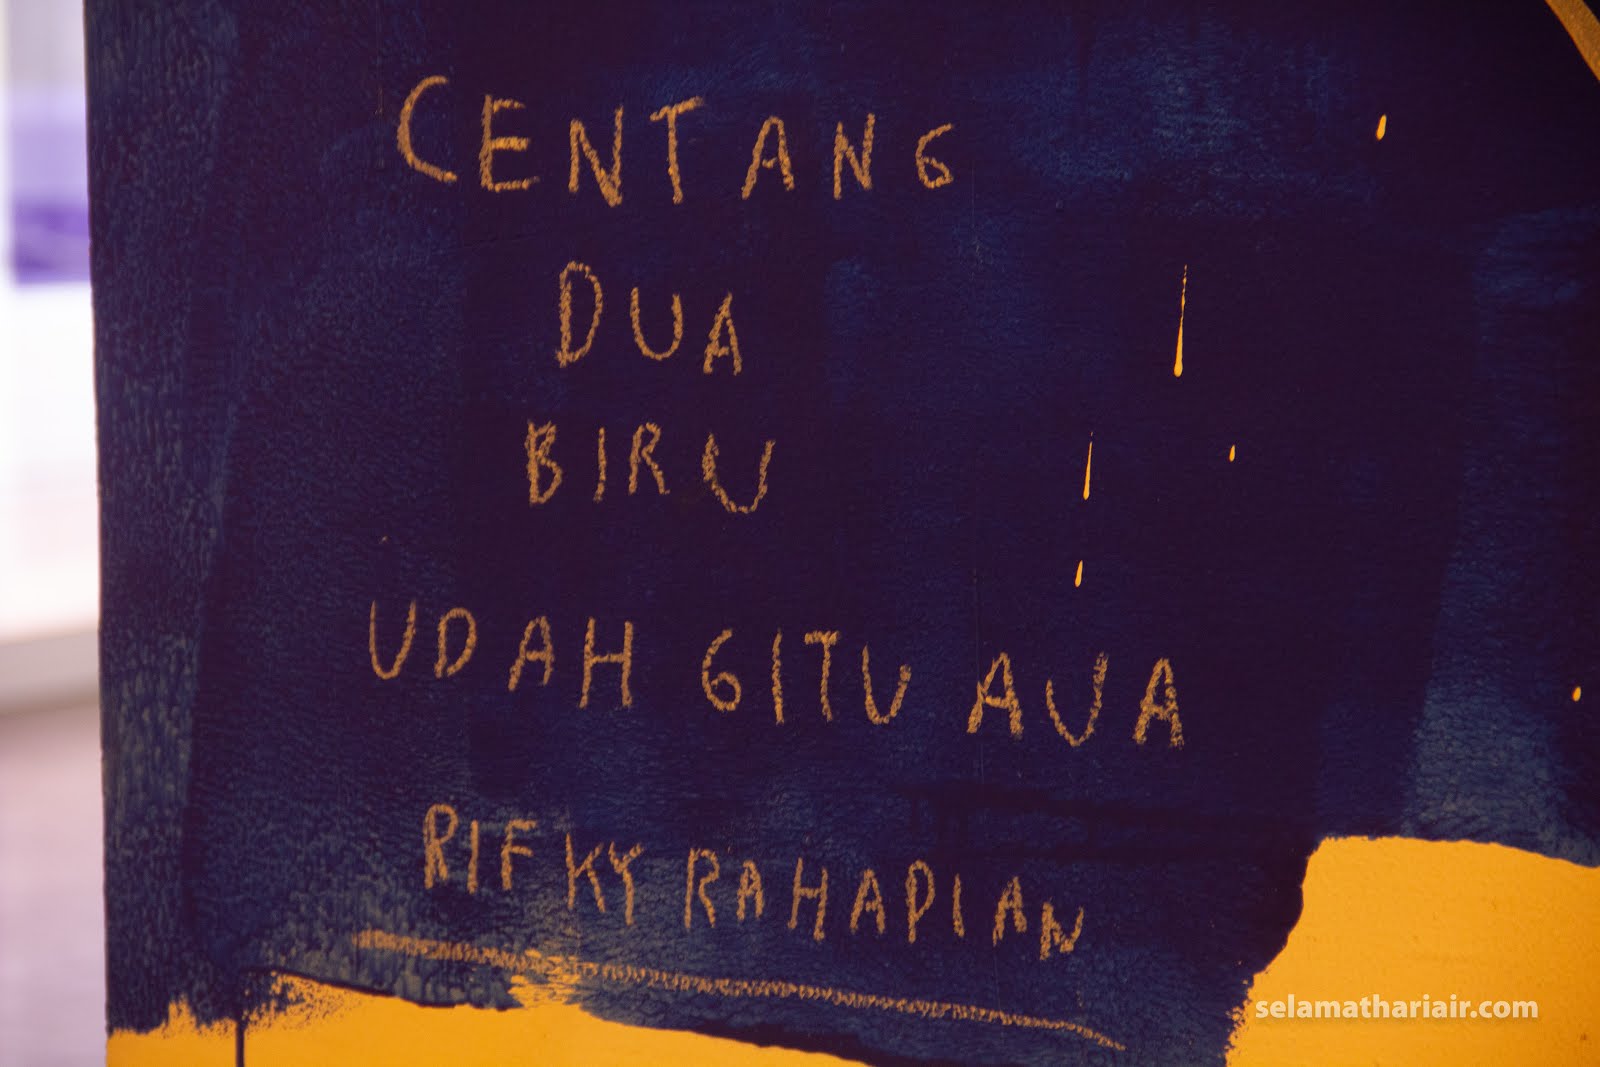 CENTANG
DUA
BIRU
UDAH GITU AJA
RIFKY RAHAPIAN
selamathariair.com